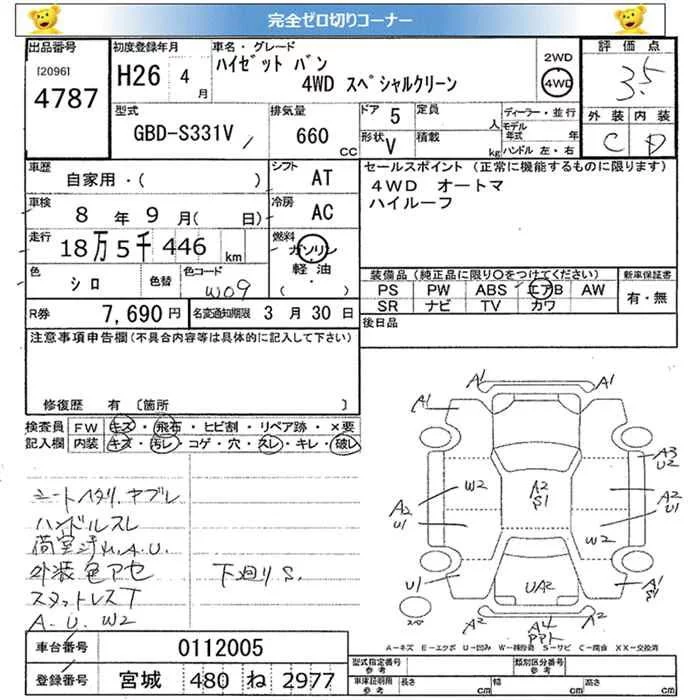 完全ゼロ切りコーナー
出品番号
[2096]
4787
初度登録年月
H26 4 月
車名・グレード
ハイゼット バン
4WD スペシャルクリーン
2WD
4WD
評価点
3.5
外装 内装
C D
型式
GBD-S331V
排気量
660 CC
ドア 5
形状 V
定員 人
積載 kg
ディーラー・並行
モデル年式 年
ハンドル 左・右
車歴
自家用・( )
シフト AT
車検
8 年 9 月( 日)
冷房 AC
走行
18万5千446 km
燃料 ガソリン
軽油
( ・ )
色 シロ 色替
色コード W09
R券 7,690円
名変通知期限 3月30日
セールスポイント(正常に機能するものに限ります)
4WD オートマ
ハイルーフ
装備品(純正品に限り○をつけてください)
PS PW ABS エアB AW
SR ナビ TV カワ
新車保証書
有・無
後日品
注意事項申告欄(不具合内容等は具体的に記入して下さい)
修復歴 有〔箇所 〕
検査員記入欄
FW キズ・飛石・ヒビ割・リペア跡・×要
内装 キズ・汚レ・コゲ・穴・スレ・キレ・破レ
シートヘタリ、ヤブレ
ハンドルスレ
荷室汚れ.A.U.
外装色アセ
スタットレスT
A.U.W2
下廻りS.
A1 A1
A3
U2
W2
A2
S1
A2
U1
A2
U1
W2
U1
UA2
A1
S1
A2
A4
A2
スペ
A-キズ E-エクボ U-凹み W-補修跡 S-サビ C-腐食 XX-交換済
車台番号 0112005
登録番号 宮城 480 ね 2977
型式指定番号
参考
類別区分番号
参考
車庫証明用
参考
長さ cm
幅 cm
高さ cm